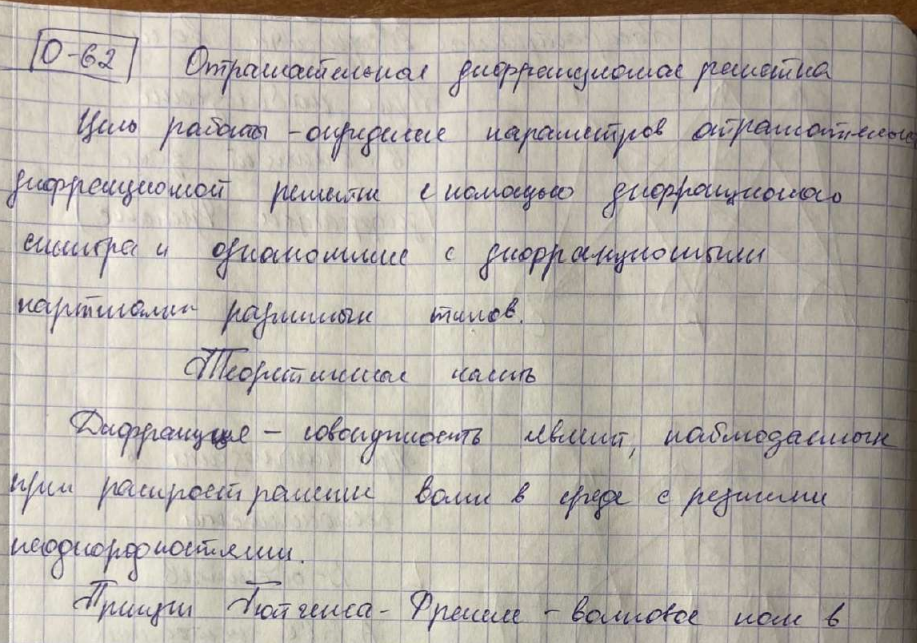 О-62 Отражательная дифракционная решетка
Цель работы - определение параметров отражательной
дифракционной решетки с помощью дифракционного
спектра и ознакомление с дифракционными
картинами различных типов.
Теоретическая часть
Дифракция - совокупность явлений, наблюдаемых
при распространении волн в среде с резкими
неоднородностями.
Принцип Гюйгенса-Френеля - волновое поле в